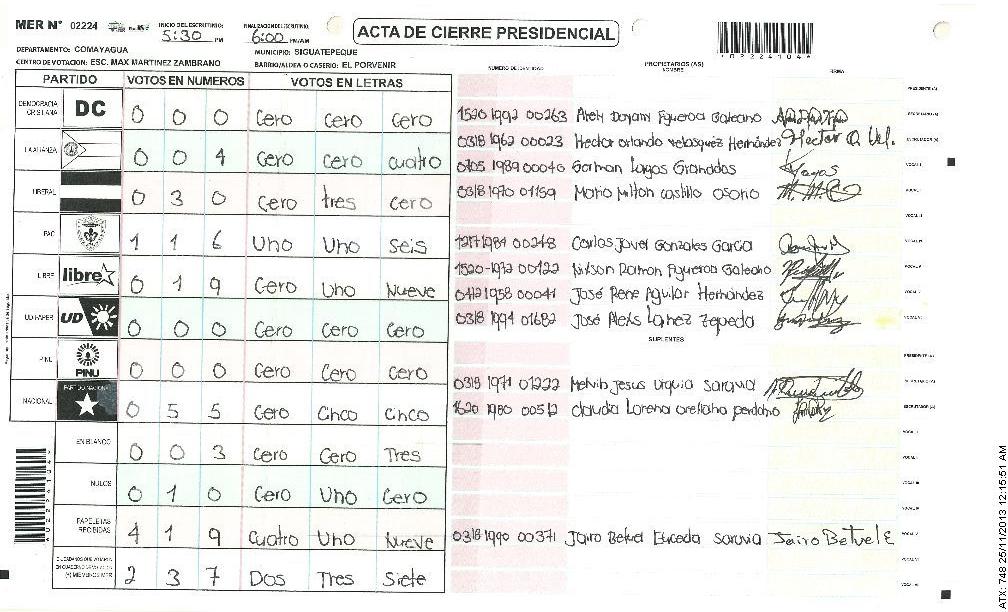 MER N° 02224
INICIO DEL ESCRUTINIO:
5:30 PM
FINALIZACION DEL ESCRUTINIO:
6:00 PM/AM
ACTA DE CIERRE PRESIDENCIAL
DEPARTAMENTO: COMAYAGUA
MUNICIPIO: SIGUATEPEQUE
CENTRO DE VOTACION: ESC. MAX MARTINEZ ZAMBRANO
BARRIO/ALDEA O CASERIO: EL PORVENIR
PARTIDO VOTOS EN NUMEROS VOTOS EN LETRAS
NUMERO DE IDENTIDAD PROPIETARIOS (AS) NOMBRE FIRMA
DEMOCRACIA CRISTIANA DC 0 0 0 Cero Cero Cero
LA ALIANZA 0 0 4 Cero Cero cuatro
LIBERAL 0 3 0 Cero tres Cero
PAC 1 1 6 Uno Uno Seis
LIBRE libre 0 1 9 Cero Uno Nueve
UD FAPER UD 0 0 0 Cero Cero Cero
PINU PINU 0 0 0 Cero Cero Cero
NACIONAL PARTIDO NACIONAL 0 5 5 Cero Cinco Cinco
EN BLANCO 0 0 3 Cero Cero Tres
NULOS 0 1 0 Cero Uno Cero
PAPELETAS RECIBIDAS 4 1 9 Cuatro Uno Nueve
CIUDADANOS QUE VOTARON EN CUADERNO DE VOTACION (+) MIEMBROS MER 2 3 7 Dos Tres Siete
1520 1992 00263 Figueroa Galeano
0318 1962 00023 Hector orlando velasquez Hernández Hector O. Vel.
0705 1989 00046 German Lagos Granados Lagos
0318 1970 01159 Mario Milton castillo osorio
1217 1984 00248 Carlos Javel Gonzales Garcia
1520-1972 00122 Nilson Ramon Figueroa Galeano
0412 1958 00041 José Rene Aguilar Hernández
0318 1994 01682 José Alexis Lainez Zepeda
SUPLENTES
0318 1971 01222 Melvin Jesus urquia saravia
1620 1980 00512 claudia Lorena orellana perdomo
0318 1990 00371 Jairo Betuel Euceda saravia Jairo Betuel E
PRESIDENTE (A)
SECRETARIO (A)
ESCRUTADOR (A)
ATX: 748 25/11/2013 12:15:51 AM